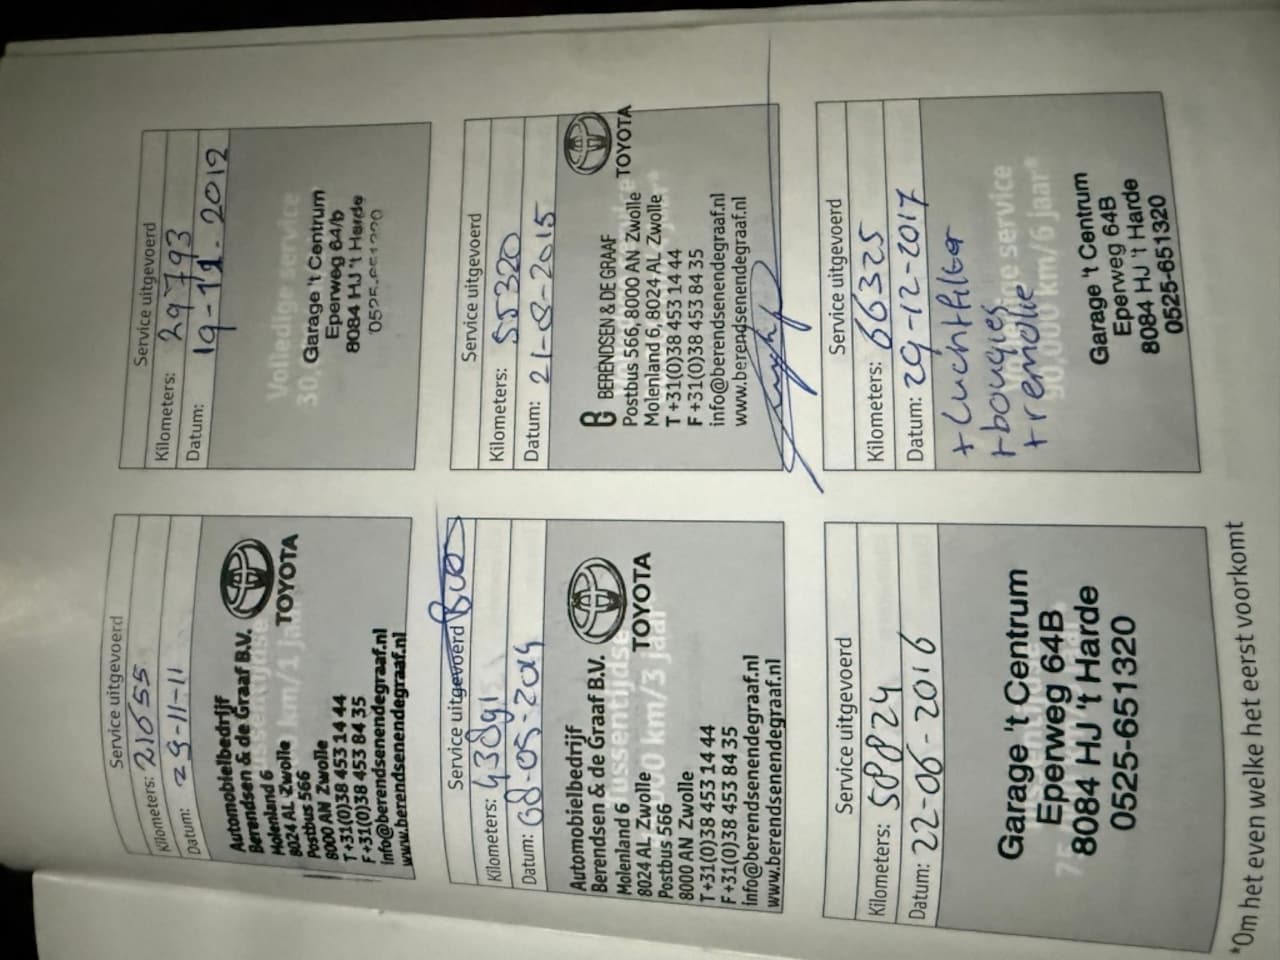 Service uitgevoerd
Kilometers: 21655
Datum: 29-11-11
Automobielbedrijf
Berendsen & de Graaf B.V.
Molenland 6
8024 AL Zwolle
Postbus 566
8000 AN Zwolle
T +31(0)38 453 14 44
F +31(0)38 453 84 35
info@berendsenendegraaf.nl
www.berendsenendegraaf.nl
TOYOTA
Service uitgevoerd
Kilometers: 29793
Datum: 19-11-2012
Volledige service
30.
Garage 't Centrum
Eperweg 64/b
8084 HJ 't Harde
0525-651320
Service uitgevoerd
Kilometers: 43891
Datum: 08-05-2014
Automobielbedrijf
Berendsen & de Graaf B.V.
Molenland 6
8024 AL Zwolle
Postbus 566
8000 AN Zwolle
T +31(0)38 453 14 44
F +31(0)38 453 84 35
info@berendsenendegraaf.nl
www.berendsenendegraaf.nl
TOYOTA
Service uitgevoerd
Kilometers: 55320
Datum: 21-08-2015
BERENDSEN & DE GRAAF
Postbus 566, 8000 AN Zwolle
Molenland 6, 8024 AL Zwolle
T +31(0)38 453 14 44
F +31(0)38 453 84 35
info@berendsenendegraaf.nl
www.berendsenendegraaf.nl
TOYOTA
Service uitgevoerd
Kilometers: 58824
Datum: 22-06-2016
Garage 't Centrum
Eperweg 64B
8084 HJ 't Harde
0525-651320
Service uitgevoerd
Kilometers: 66325
Datum: 29-12-2017
+ Luchtfilter
+ bougies
+ remolie
service
90.000 km/6 jaar*
Garage 't Centrum
Eperweg 64B
8084 HJ 't Harde
0525-651320
*Om het even welke het eerst voorkomt